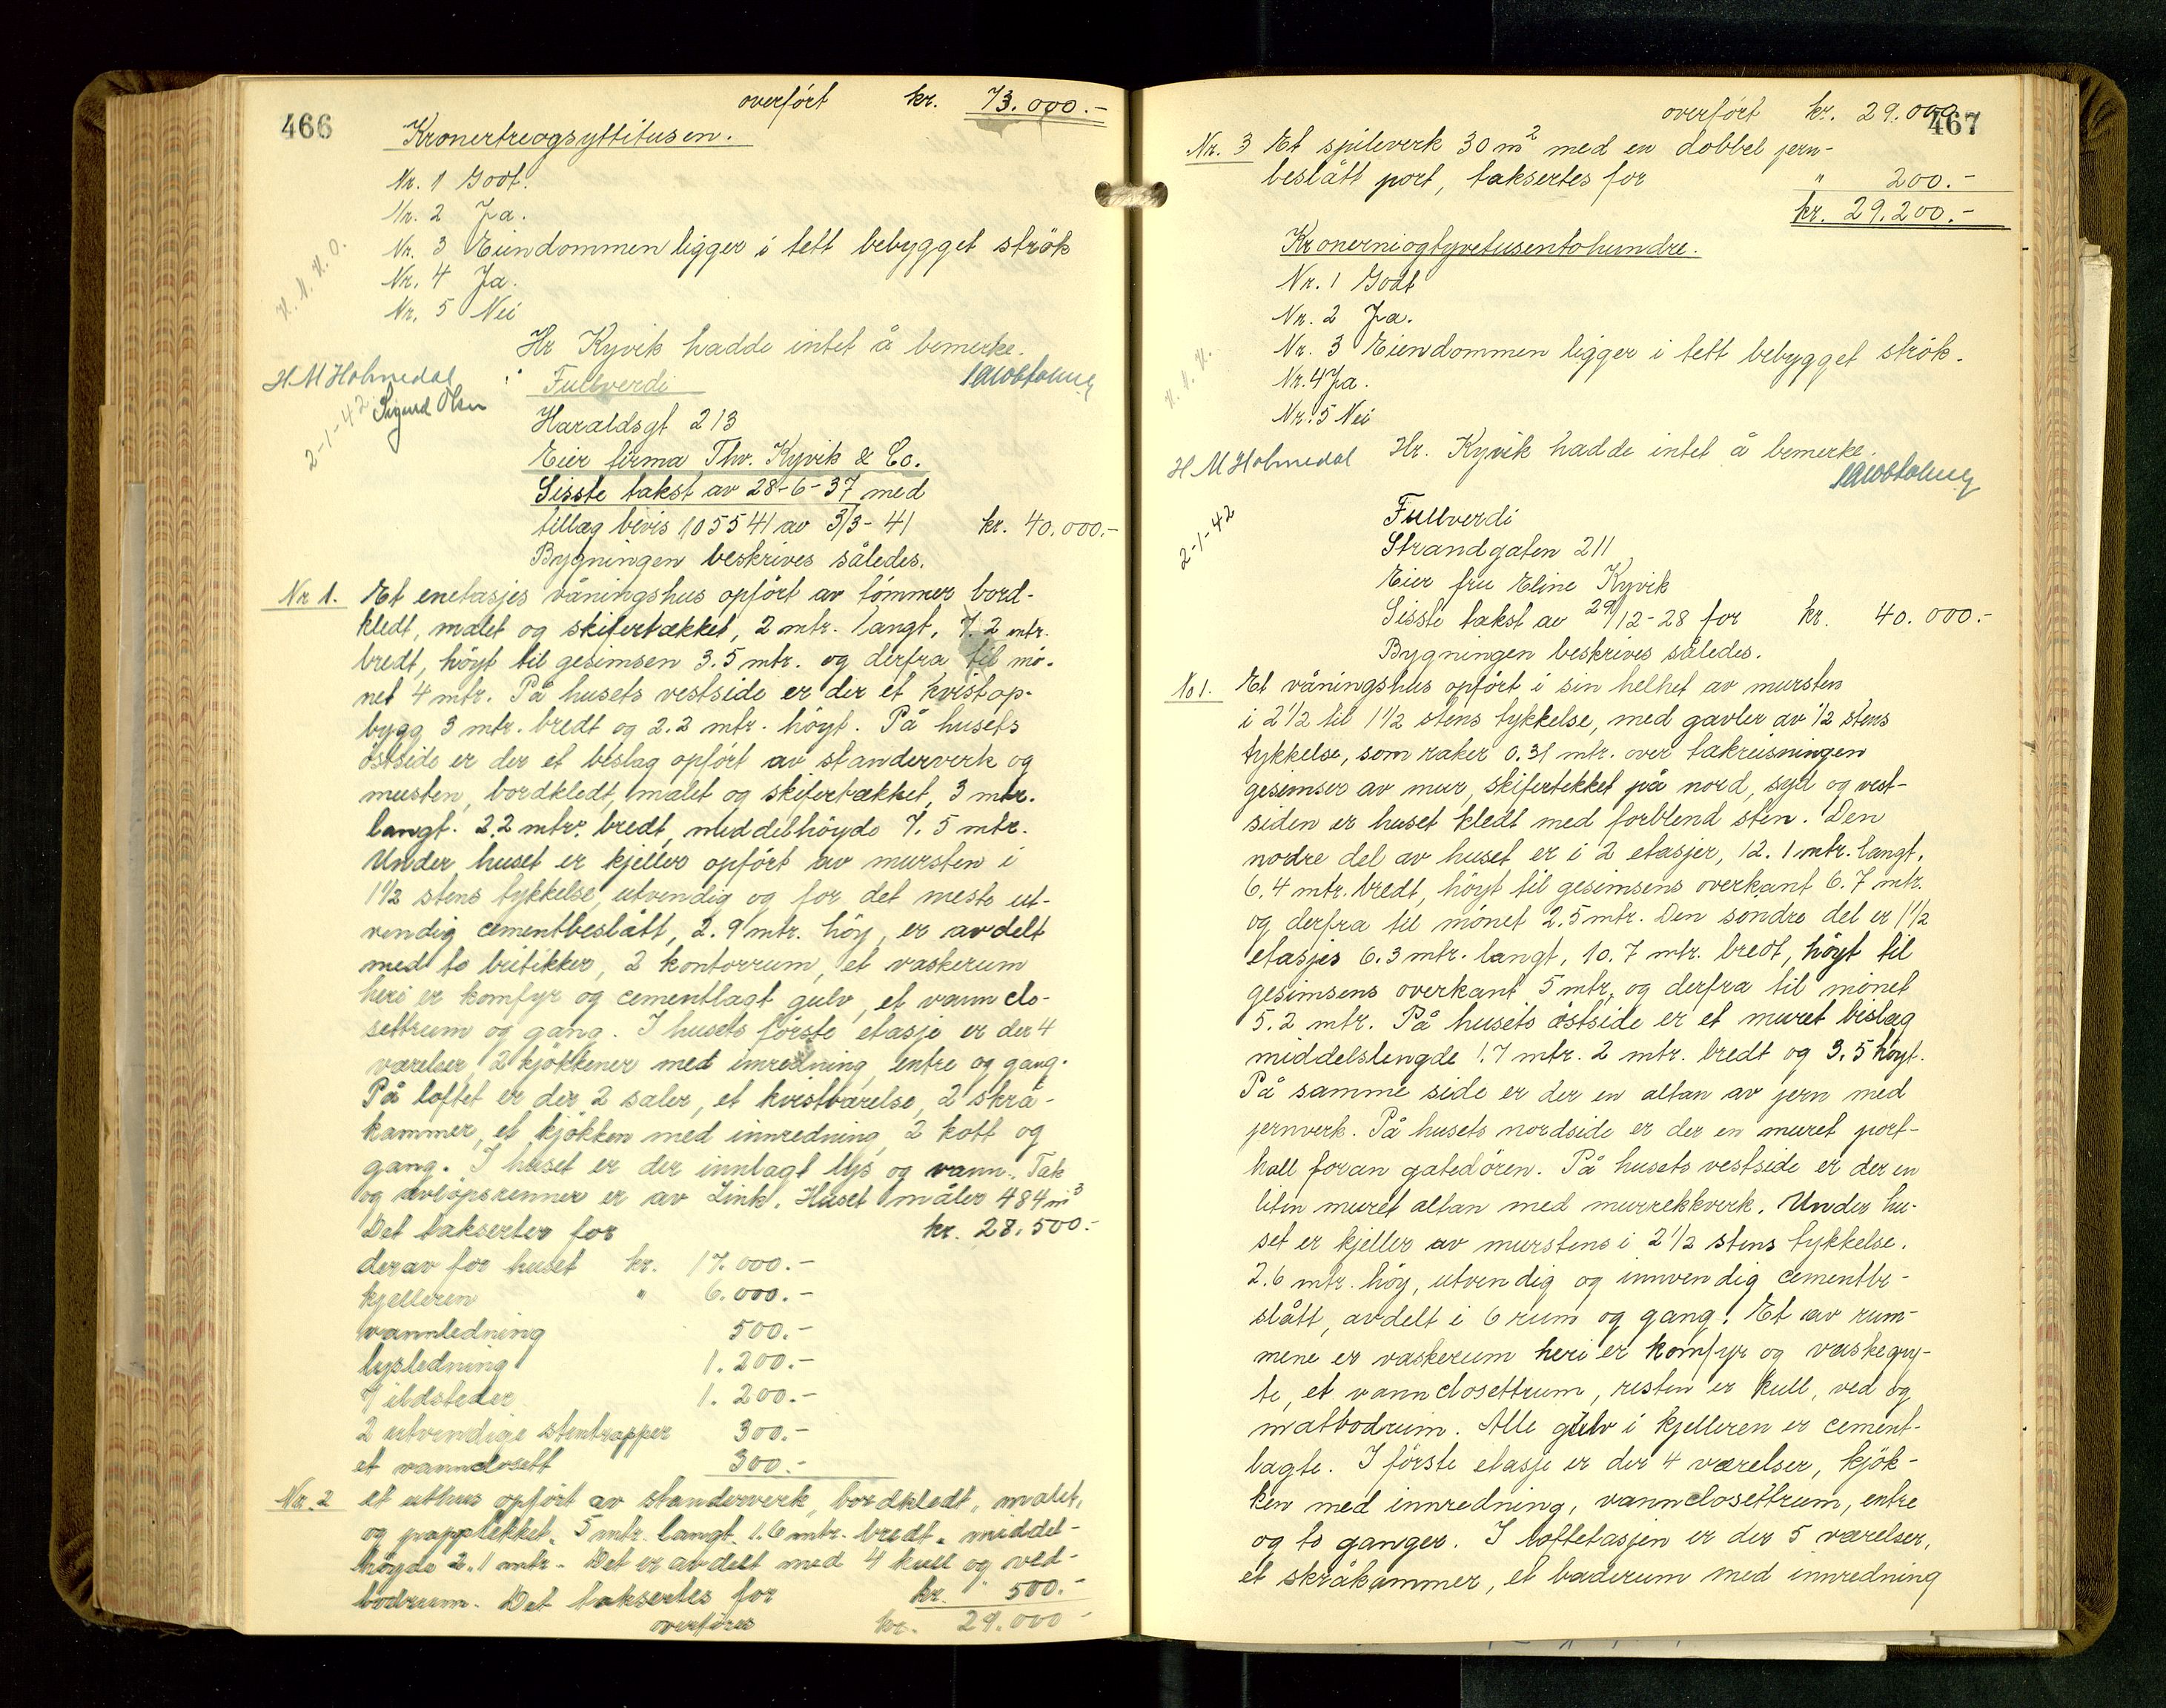 466
overført kr. 73.000.-
Kronertreogsyttitusen.
Nr. 1 Godt.
Nr. 2 Ja.
Nr. 3 Eiendommen ligger i tett bebygget strök
Nr. 4 Ja.
Nr. 5 Nei
Hr Kyvik hadde intet å bemerke.
H M Holmedal
Sigurd Olsen
2-1-42
Fullverdi
Haraldsgt 213
Eier firma Thv. Kyvik & Co.
Sisste takst av 28-6-37 med
tillæg bevis 105541 av 3/3-41 kr. 40.000.-
Bygningen beskrives således.
Nr 1. Et enetasjes våningshus opfört av tömmer bord-
kledt, malet og skifertækket, 2 mtr. langt, 7.2 mtr.
bredt, höyt til gesimsen 3.5 mtr. og derfra til mö-
net 4 mtr. På husets vestside er der et kvistop-
bygg 3 mtr. bredt og 2.2 mtr. höyt. På husets
östside er der et beslag opfört av standerverk og
mursten, bordkledt, malet og skifertækket, 3 mtr.
langt. 2.2 mtr. bredt, middelhöyde 7.5 mtr.
Under huset er kjeller opfört av mursten i
1½ stens tykkelse, utvendig og for det meste ut-
vendig cementbeslått, 2.9 mtr. höy, er avdelt
med to butikker, 2 kontorrum, et vaskerum
heri er komfyr og cementlagt gulv, et vannclo-
settrum og gang. I husets förste etasje er der 4
værelser, 2 kjökkener med innredning, entre og gang.
På loftet er der 2 saler, et kvistværelse, 2 skrå-
kammer, et kjökken med innredning, 2 kott og
gang. I huset er der innlagt lys og vann. Tak
og avlöpsrenner er av Zink. Huset måler 484 m³
Det takserter for kr. 28.500.-
derav for huset kr. 17.000.-
kjelleren " 6.000.-
vannledning 500.-
lysledning 1.200.-
7 ildsteder 1.200.-
2 utvendige stentrapper 300.-
et vannclosett 300.-
Nr. 2 et uthus opfört av standerverk, bordkledt, malet,
og papptekket. 5 mtr. langt. 1.6 mtr. bredt. middel-
höyde 2.1 mtr. Det er avdelt med 4 kull og ved-
bodrum. Det taksertes for kr. 500.-
overføres kr. 29.000-
467
overført kr. 29.000
Nr. 3 Et spileverk 30 m² med en dobbel jern-
beslått port, taksertes for " 200.-
kr. 29.200.-
Kronerniogtyvetusentohundre.
Nr. 1 Godt
Nr. 2 Ja.
Nr. 3 Eiendommen ligger i tett bebygget strök.
Nr. 4 Ja.
Nr. 5 Nei
Hr. Kyvik hadde intet å bemerke.
H M Holmedal
2-1-42
Fullverdi
Strandgaten 211
Eier fru Eline Kyvik
Sisste takst av 29/12-28 for kr. 40.000.-
Bygningen beskrives således.
No 1. Et våningshus opfört i sin helhet av mursten
i 2½ til 1½ stens tykkelse, med gavler av ½ stens
tykkelse, som raker 0.31 mtr. over takreisningen
gesimser av mur, skifertekket på nord, syd og vest-
siden er huset kledt med forblend sten. Den
nordre del av huset er i 2 etasjer, 12.1 mtr. langt,
6.4 mtr. bredt, höyt til gesimsens overkant 6.7 mtr.
og derfra til mönet 2.5 mtr. Den söndre del er 1½
etasjes 6.3 mtr. langt, 10.7 mtr. bredt, höyt til
gesimsens overkant 5 mtr, og derfra til mönet
5.2 mtr. På husets östside er et muret bislag
middelslengde 1.7 mtr. 2 mtr. bredt og 3.5 höyt.
På samme side er der en altan av jern med
jernverk. På husets nordside er der en muret port-
hall foran gatedören. På husets vestside er der en
liten muret altan med murrekkverk. Under hu-
set er kjeller av murstens i 2½ stens tykkelse.
2.6 mtr. höy, utvendig og innvendig cementbe-
slått, avdelt i 6 rum og gang. Et av rum-
mene er vaskerum heri er komfyr og vaskegry-
te, et vannclosettrum, resten er kull, ved og
matbodrum. Alle gulv i kjelleren er cement-
lagte. I förste etasje er der 4 værelser, kjök-
ken med innredning, vannclosettrum, entre
og to ganger. I loftetasjen er der 5 værelser,
et skråkammer, et baderum med innredning